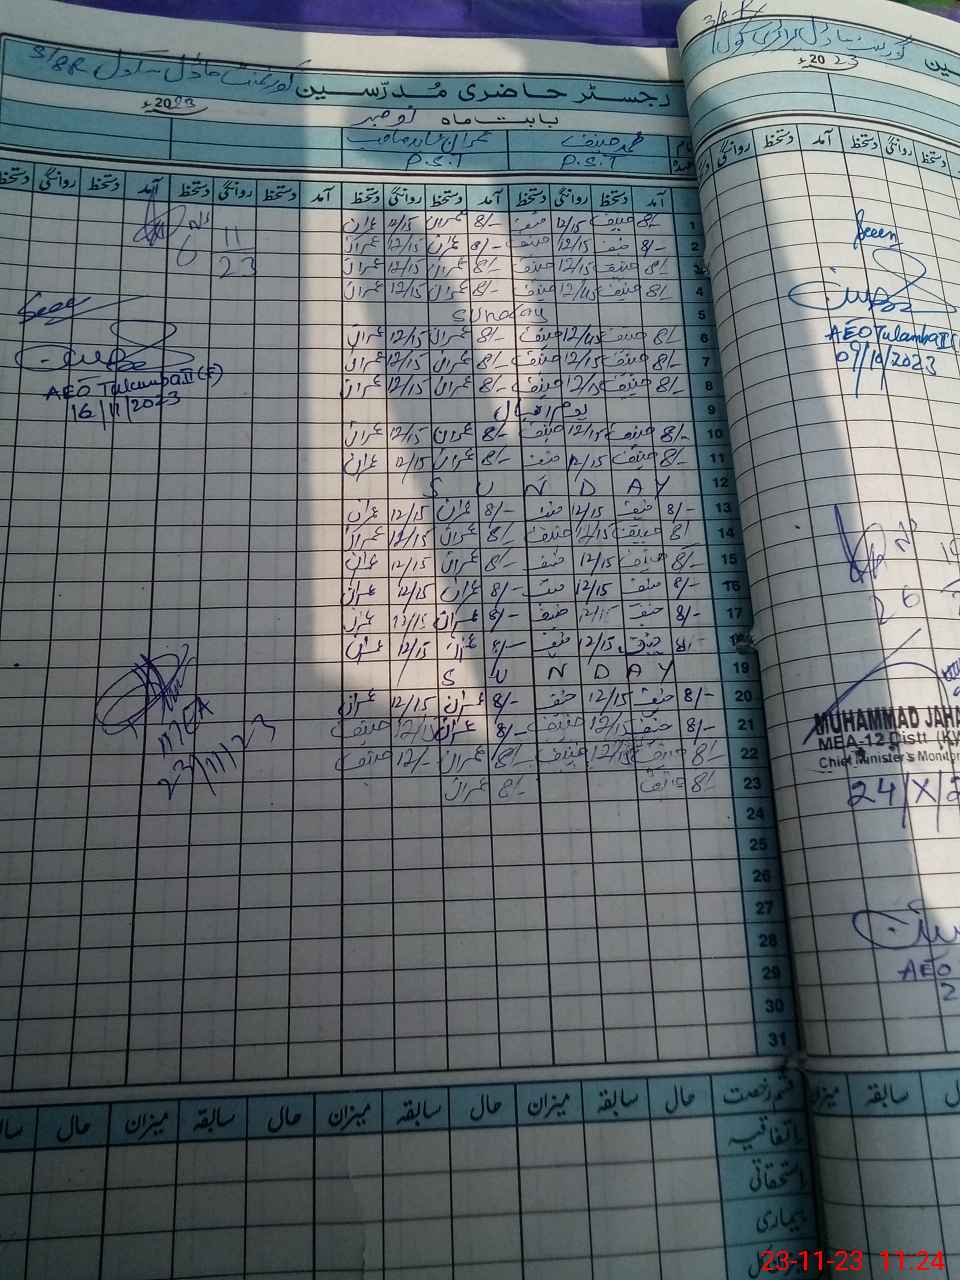 گورنمنٹ ماڈل سکول 3/8R
رجسٹر حاضری مُدرّسین
بابت ماہ نومبر 2023ء
محمد حنیف عمران
P.S.T P.S.T
آمد دستخط روانگی دستخط آمد دستخط روانگی دستخط آمد دستخط روانگی دستخط آمد دستخط روانگی دستخط
1 8/- حنیف 12/15 حنیف 8/- عمران 12/15 عمران
2 8/- حنیف 12/15 حنیف 8/- عمران 12/15 عمران
3 8/- حنیف 12/15 حنیف 8/- عمران 12/15 عمران
4 8/- حنیف 12/15 حنیف 8/- عمران 12/15 عمران
5 Sunday
6 8/- حنیف 12/15 حنیف 8/- عمران 12/15 عمران
7 8/- حنیف 12/15 حنیف 8/- عمران 12/15 عمران
8 8/- حنیف 12/15 حنیف 8/- عمران 12/15 عمران
9 یوم اقبال
10 8/- حنیف 12/15 حنیف 8/- عمران 12/15 عمران
11 8/- حنیف 12/15 حنیف 8/- عمران 12/15 عمران
12 SUNDAY
13 8/- حنیف 12/15 حنیف 8/- عمران 12/15 عمران
14 8/- حنیف 12/15 حنیف 8/- عمران 12/15 عمران
15 8/- حنیف 12/15 حنیف 8/- عمران 12/15 عمران
16 8/- حنیف 12/15 حنیف 8/- عمران 12/15 عمران
17 8/- حنیف 12/15 حنیف 8/- عمران 12/15 عمران
8/- حنیف 12/15 حنیف 8/- عمران 12/15 عمران
19 SUNDAY
20 8/- حنیف 12/15 حنیف 8/- عمران 12/15 عمران
21 8/- حنیف 12/15 حنیف 8/- عمران 12/15 حنیف
22 8/- حنیف 12/15 حنیف 8/- عمران 12/- حنیف
23 8/- حنیف 8/- عمران
24
25
26
27
28
29
30
31
11
23
Seen
AEO Tulamba II (F)
16/11/2023
MEA
23/11/23
قسم رخصت حال سابقہ میزان حال سابقہ میزان حال سابقہ میزان حال
اتفاقیہ
استحقاقی
بیماری
3/8R
2023ء
آمد دستخط روانگی دستخط
Seen
AEO Tulamba II
09/10/2023
26
MUHAMMAD JAHA
MEA-12 Distt (K
Chief Minister's Monitor
24/X/2
AEO
2
میزان سابقہ
23-11-23 11:24